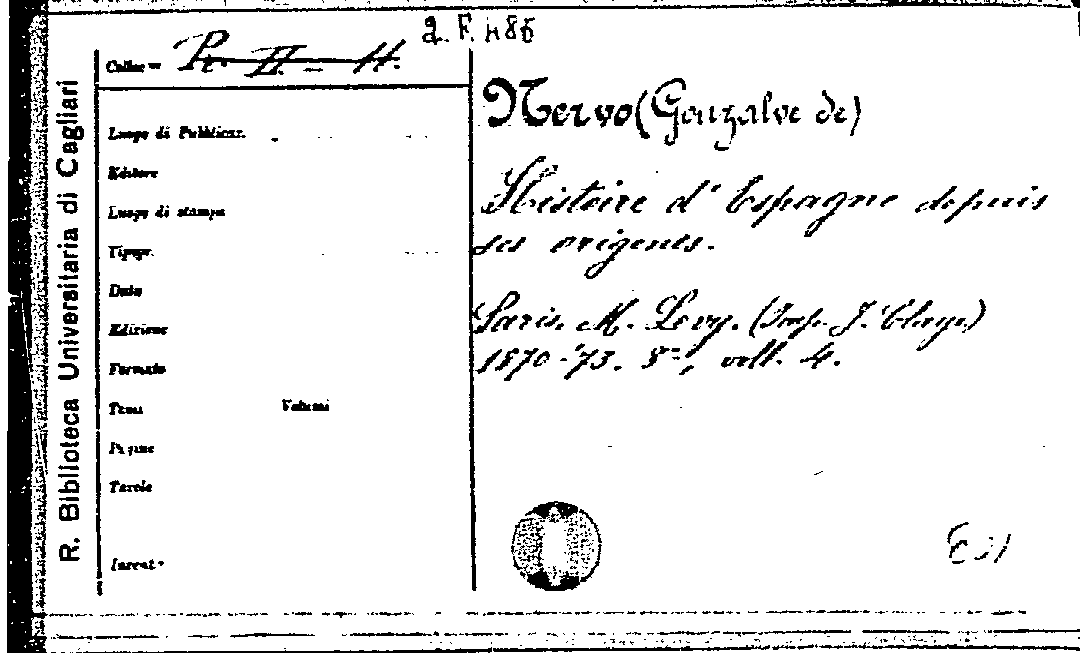 2. F. 486
Colloc = Pr. II - H.
R. Biblioteca Universitaria di Cagliari
Luogo di Pubblicaz.
Editore
Luogo di stampa
Tipogr.
Data
Edizione
Formato
Tomi Volumi
Pagine
Tavole
Invent.
Nervo (Gonzalve de)
Histoire d'Espagne depuis
ses origenes.
Paris. M. Levy. (Imp. J. Claye)
1870-'73. 8º, voll. 4.